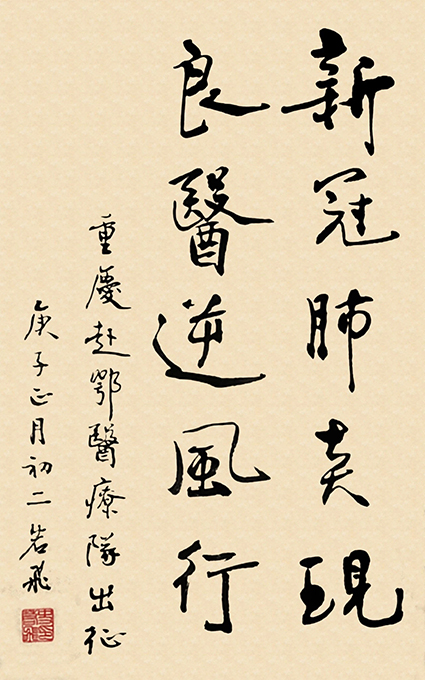 新冠肺炎現
良醫逆風行
重慶赴鄂醫療隊出征
庚子正月初二岩飛